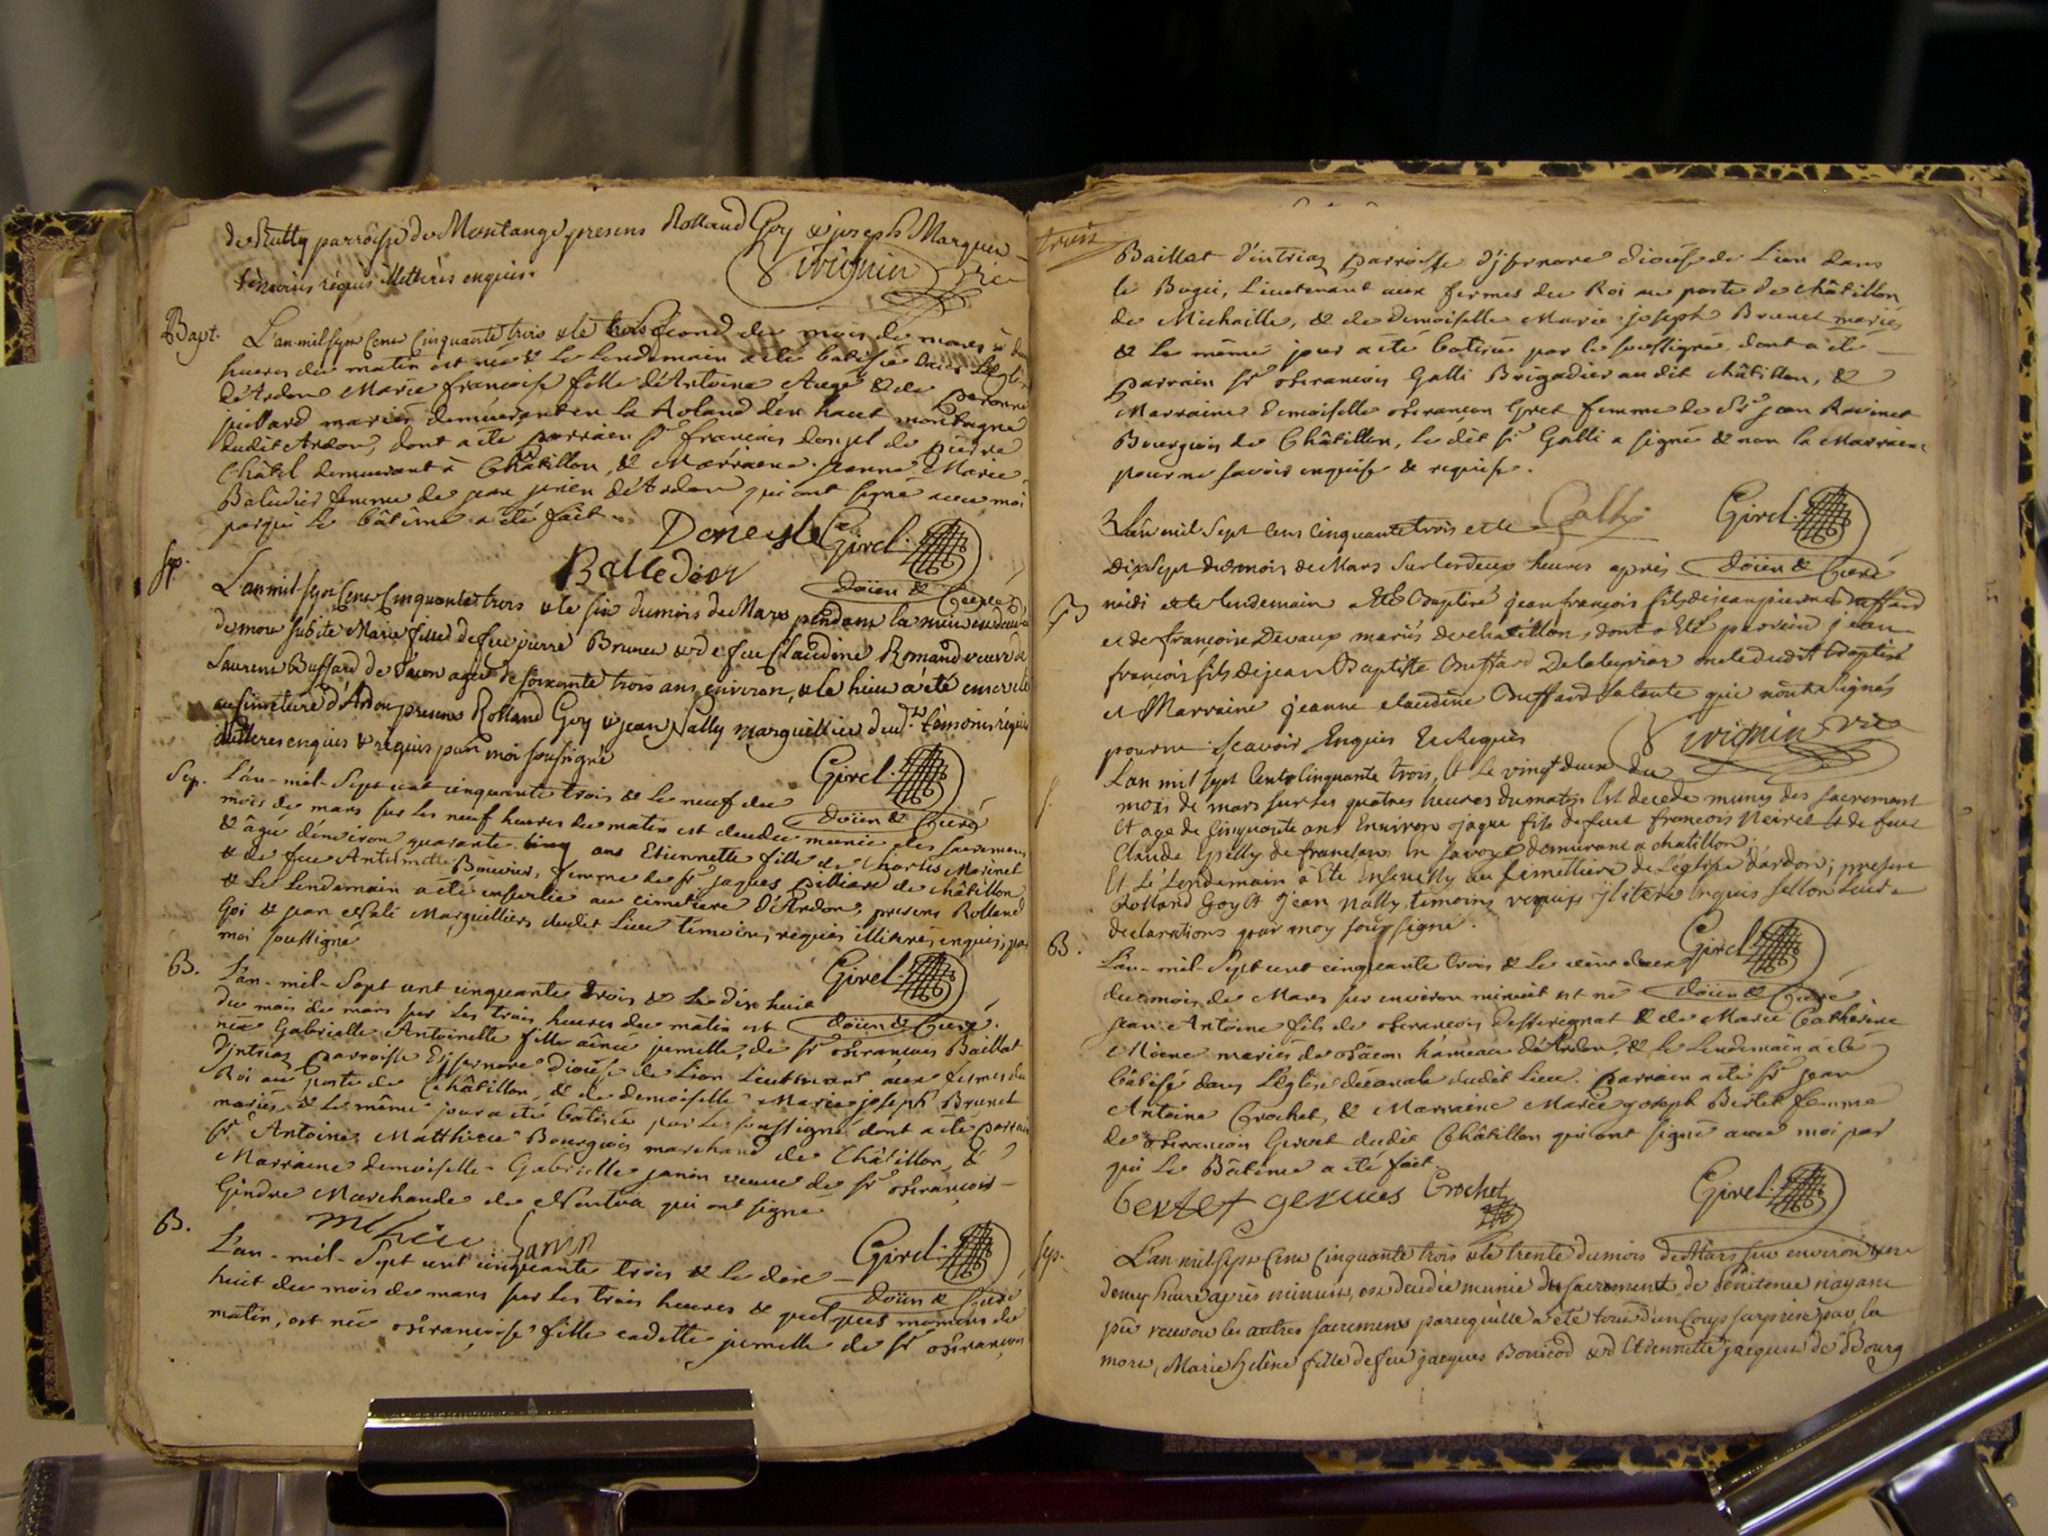 de Rully parroisse de Montange presens Rolland Goy & joseph Marquer
témoins réquis illetterés enquis.
Vivignin Vic
Bapt.
L'an mil sept cens cinquante trois & le second du mois de mars à
heures du matin est née & le lendemain a été batisée dans l'Eglise
d'Ardon Marie françoise fille d'Antoine Augé & de peronne
juillard mariés demeurant en la Roland d'en haut montagne
dudit Ardon, dont a été parrain sr. françois Donesel de pierre
Châtel demeurant à Châtillon, & Marraine jeanne Marie
Baludier femme de jean d'Ardon qui ont signé avec moi
par qui le bâtême a été fait.
Donesel Girel.
Balledier
doïen & Curé
Sep.
L'an mil sept cens cinquante trois & le six du mois de Mars pendant la nuit est decedée
de mort subite Marie fille de feu pierre Brunet & de feu Claudine Romand veuve de
Laurent Buffard de Vacon agée de soixante trois ans environ, & le hieu a été ensevelie
au simetiere d'Ardon presens Rolland Goy & jean Nally marguillier dud. lt. témoins réquis
illitteres enquis & requis par moi soussigné
Girel.
doïen & Curé
Sep.
L'an-mil-Sept cent cinquante trois & le neuf du
mois de mars sur les neuf heures du matin est decedée munie des sacremens
& âgée d'environ quarante cinq ans Etiennette fille de Charles Morinet
& de feu Anthelmette Bouvier, femme de sr. jaques pilliard de châtillon
& le lendemain a été ensevelie au cimetiere d'Ardon, presens Rolland
Goi & jean Nali Marguilliers dudit Lieu temoins requis illiterés enquis, par
moi soussigné
Girel.
doïen & Curé.
B.
L'an-mil-Sept cent cinquante trois & le dix huit
du mois de mars sur les trois heures du matin est
née Gabrielle Antoinette fille aînée jemelle, de sr. François Baillat
d'intriaz parroisse d'jsernore dioése de Lion Lieutenant aux fermes du
Roi au poste de Châtillon, & de demoiselle Marie joseph Brunet
mariés, & le même jour a été batisée par le soussigné dont a été parrain
sr. Antoine Matthieu Bourgeois marchand de Châtillon, &
Marraine demoiselle Gabrielle janin veuve de sr. François
Gindre Marchande de Nantua qui ont signé
Mthieu Janin Girel.
doïen & Curé
B.
L'an-mil-Sept cent cinquante trois & le dix
huit du mois de mars sur les trois heures & quelques momens du
matin, est née Françoise fille cadette jemelle de sr. François
trois
Baillat d'intriaz parroisse d'jsernore dioése de Lion dans
le Bugei, Lieutenant aux fermes du Roi au poste de châtillon
de Michaille, & de demoiselle Marie joseph Brunet mariés
& le même jour a été batisée par le soussigné, dont a été
parrain sr. François Galli Brigadier audit châtillon, &
Marraine demoiselle François Gret femme de Sr. jean Ravinet
Bourgeois de Châtillon, le dit sr. Galli a signé & non la Marraine
pour ne savoir enquise & requise.
Gally Girel.
doïen & Curé
B
L'an mil sept cens cinquante trois et le
dix Sept du mois de Mars sur les deux heures après
midi et le lendemain a Eté Baptisé jean françois fils de jean pierre Buffard
et de françoise Devaux mariés de chatillon, dont a Eté parrein jean
françois fils de jean Baptiste Buffard oncle dudit Baptisé
et Marraine jeanne claudine Buffard sa tante qui n'ont signés
pour ne scavoir Enquis Et Requis
Vivignin Vic
S.
L'an mil sept cents cinquante trois, Et le vingt deux du
mois de mars sur les quatres heures du matin Est decede munis des sacrement
Et age de cinquante ans Environ jaque fils de feu françois Neirel Et de feue
Claude de franclans En savoye demeurant a chatillon
Et le Lendemain a Ete Ensevelly au simettiere de l'eglise d'ardon; present
Rolland Goy Et jean Nally temoins requis jlitere Enquis sellon leur
declarations par moy sous signé.
Girel
doïen & Curé
B.
L'an-mil-Sept cent cinquante trois & le vint deux
du mois de Mars sur environ minuit est né
jean Antoine fils de François desserignat & de Marie Catherine
Moine mariés de Vacon hameau d'Ardon, & le lendemain a été
bâtisé dans l'église décanale dudit lieu. parrain a été sr. jean
Antoine Crochet, & Marraine Marie joseph Bertet femme
de François Gervet dudit Châtillon qui ont signé avec moi par
qui le Bâtême a été fait.
Bertet gervais Crochet Girel.
Sep.
L'an mil sept cens cinquante trois & le trente du mois de Mars sur environ une
demy heure après minuit, est decedée munie du sacrement de penitence n'ayant
pû recevoir les autres sacremens parcequ'elle a été tout d'un coup surprise par la
mort, Marie helène fille de feu jacques Bonicod & d'Etiennette jacquet de Bourg